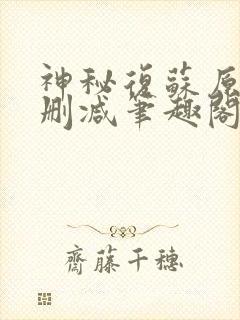 神秘復蘇原
刪減筆趣閣
齊藤千穗